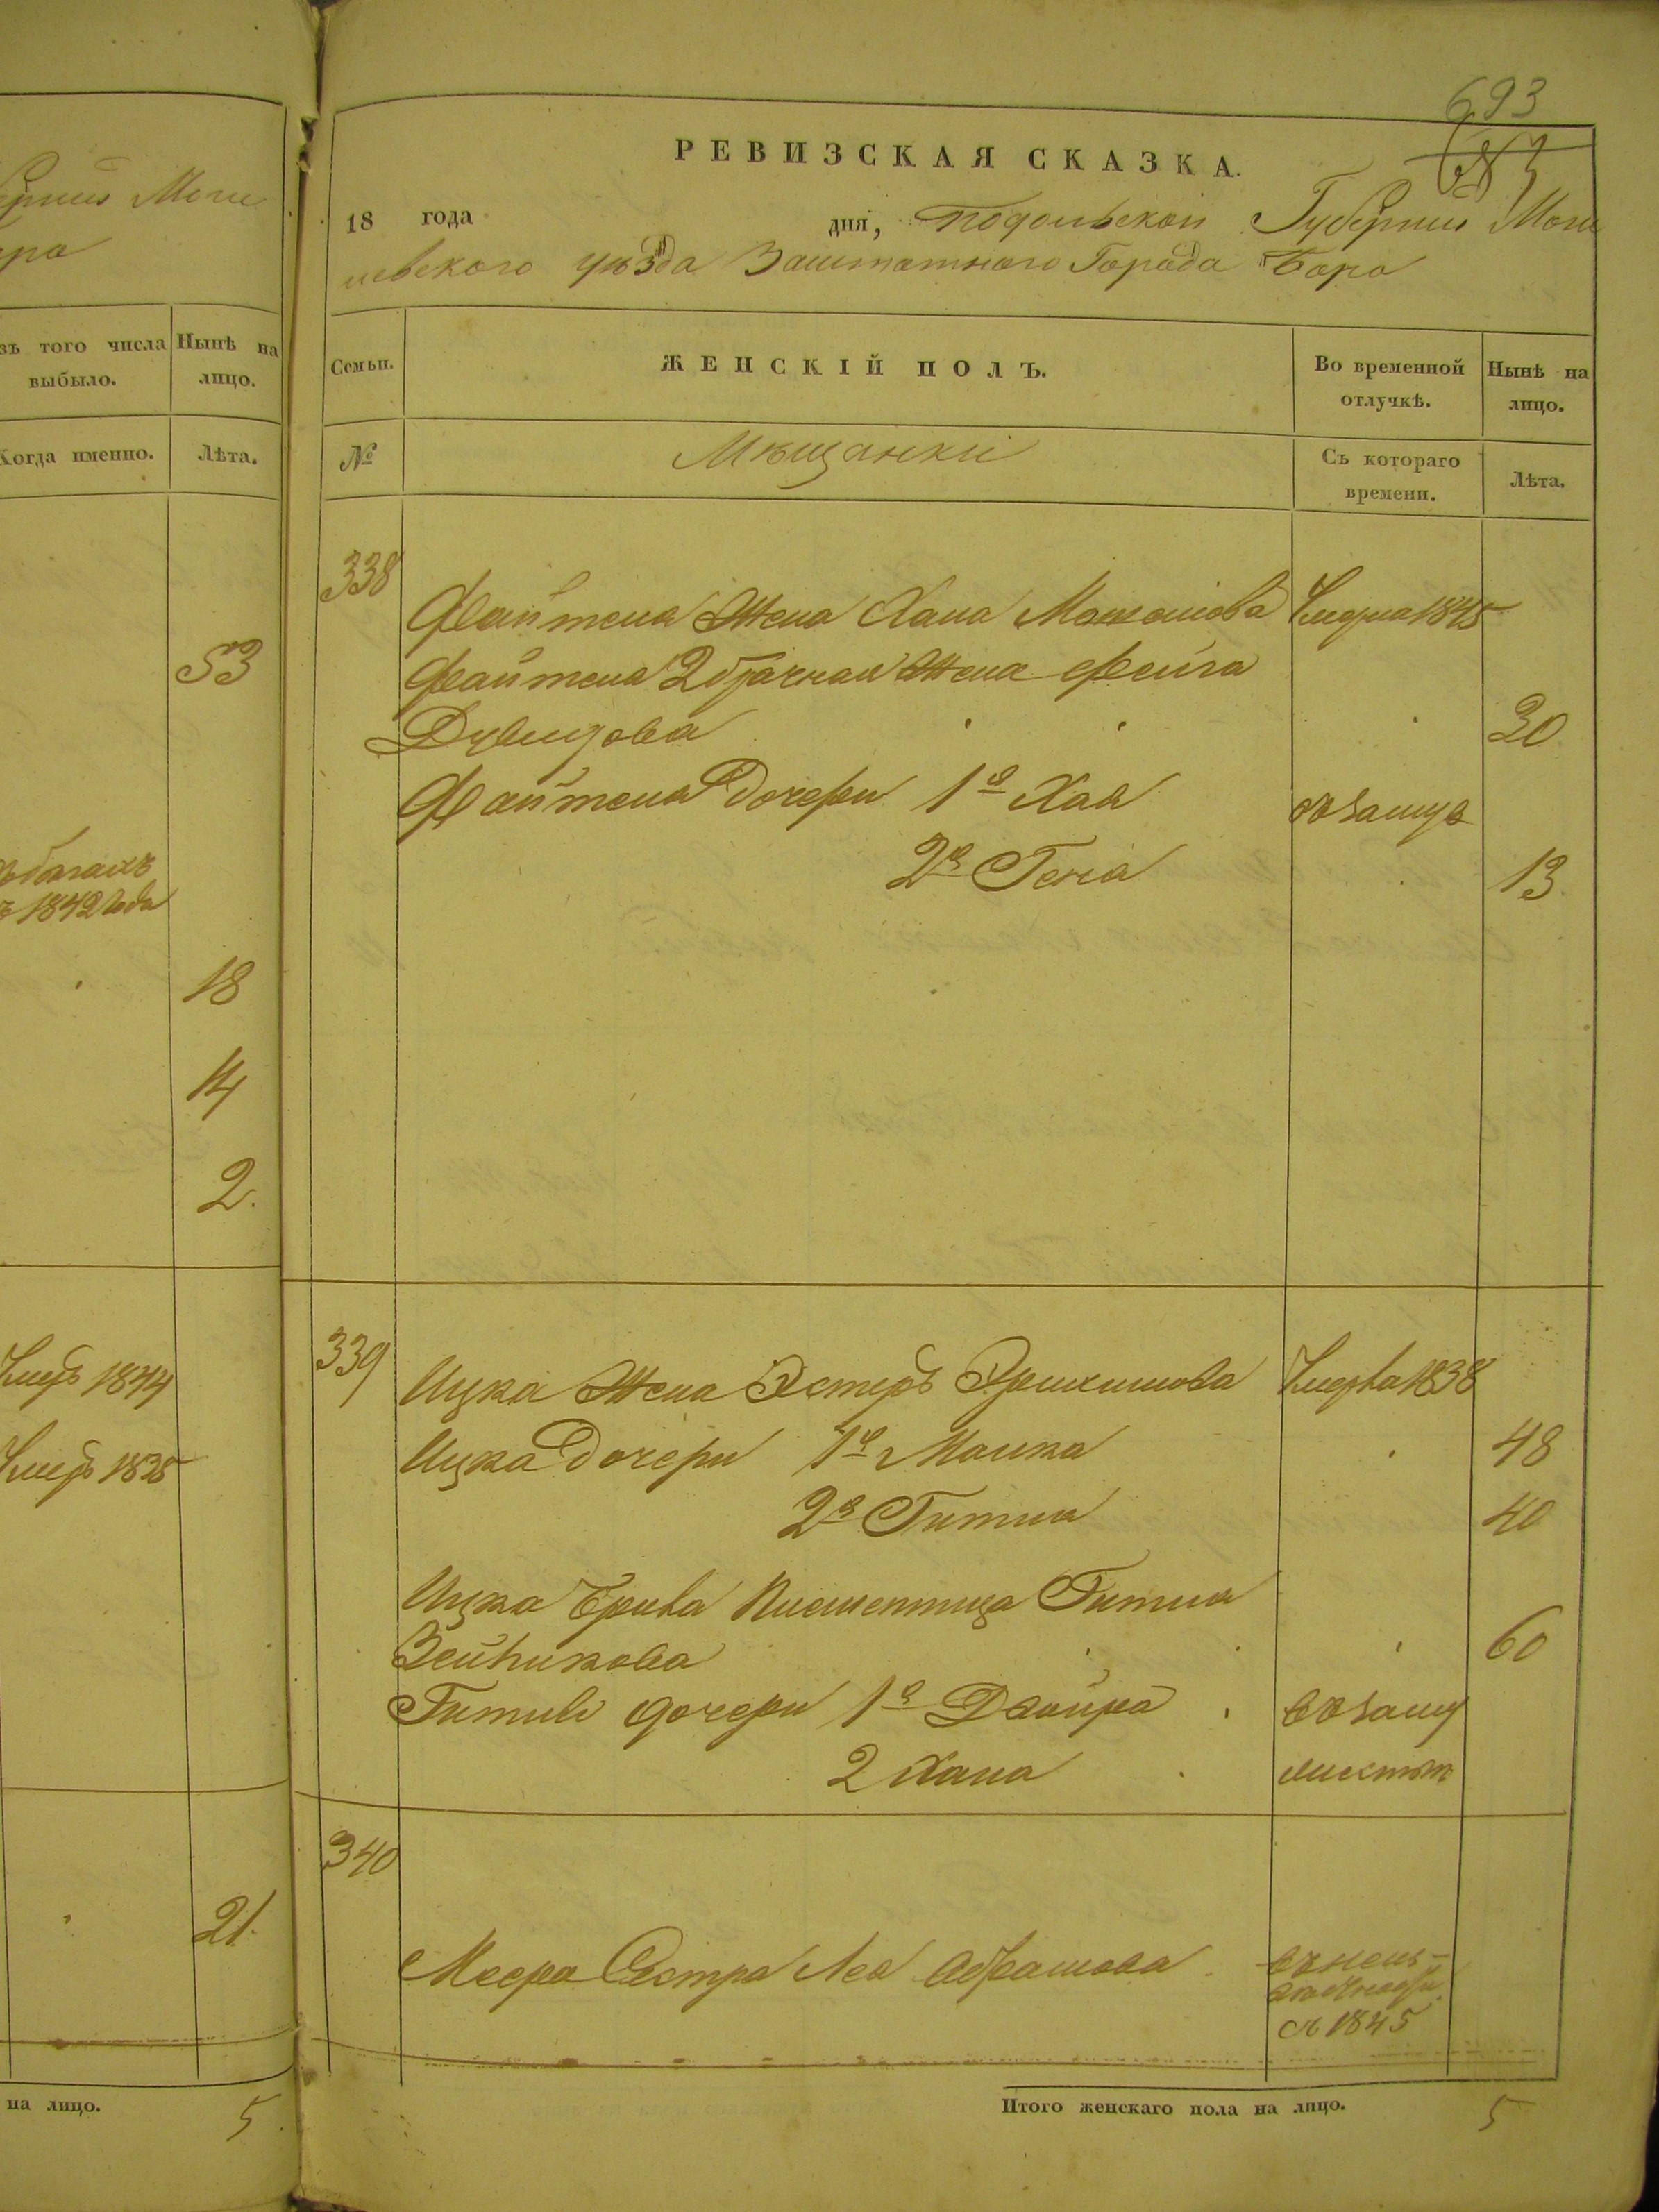 ерніи Моги
ра
зъ того числа выбыло.
Нынѣ на лицо.
Когда именно.
Лѣта.
53
1842 года
18
14
2.
Умеръ 1844
Умеръ 1835
21.
на лицо.
5.
693
РЕВИЗСКАЯ СКАЗКА.
18 года дня, Подольской Губерніи Моги
левского уѣзда Заштатного Города Бара
Семьи.
ЖЕНСКІЙ ПОЛЪ.
Во временной отлучкѣ.
Нынѣ на лицо.
№
Мѣщанки
Съ котораго времени.
Лѣта.
338
Файтеля Жена Хана Мошкова Умерла 1845
Файтеля 2 брачная Жена Фейга
Дувидова 30
Файтеля Дочери 1я Хая въ замуж
2я Геня 13.
339
Ицка Жена Эстеръ Умерла 1838
Ицка Дочери 1я Малка 48
2я Гитля 40
Ицка Гитля
60
Гитли дочери 1я Двойра въ замуж
2 Хана
340
Меера Сестра Лея Абрамова
1845
Итого женскаго пола на лицо.
5